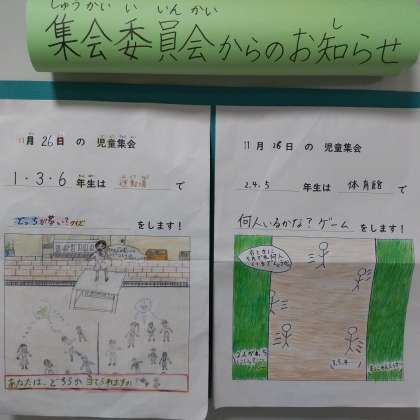 しゅうかい い いん かい
集会委員会からのお知らせ
11月 26日 の 児童集会
1・3・6 年生は 運動場 で
どっちが多い？クイズ をします！
あなたは、どちらか当てられますか
11月 26日 の 児童集会
2.4.5 年生は 体育館 で
何人いるかな？ゲーム をします！